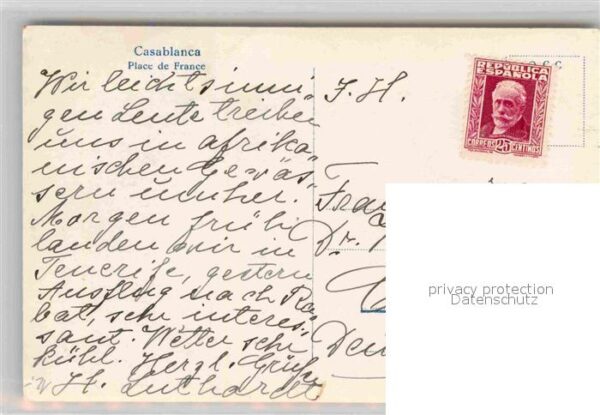 Casablanca
Place de France
Wir leichtsinni-
gen Leute treiben
uns in afrika-
nischen Gewäs-
sern umher.
Morgen früh
landen wir in
Tenerife, gestern
Ausflug nach Ra-
bat, sehr interes-
sant. Wetter sehr
kühl. Herzl. Grüße
H. Luthardt
REPUBLICA
ESPAÑOLA
CORREOS 25 CENTIMOS
Dr.
privacy protection
Datenschutz